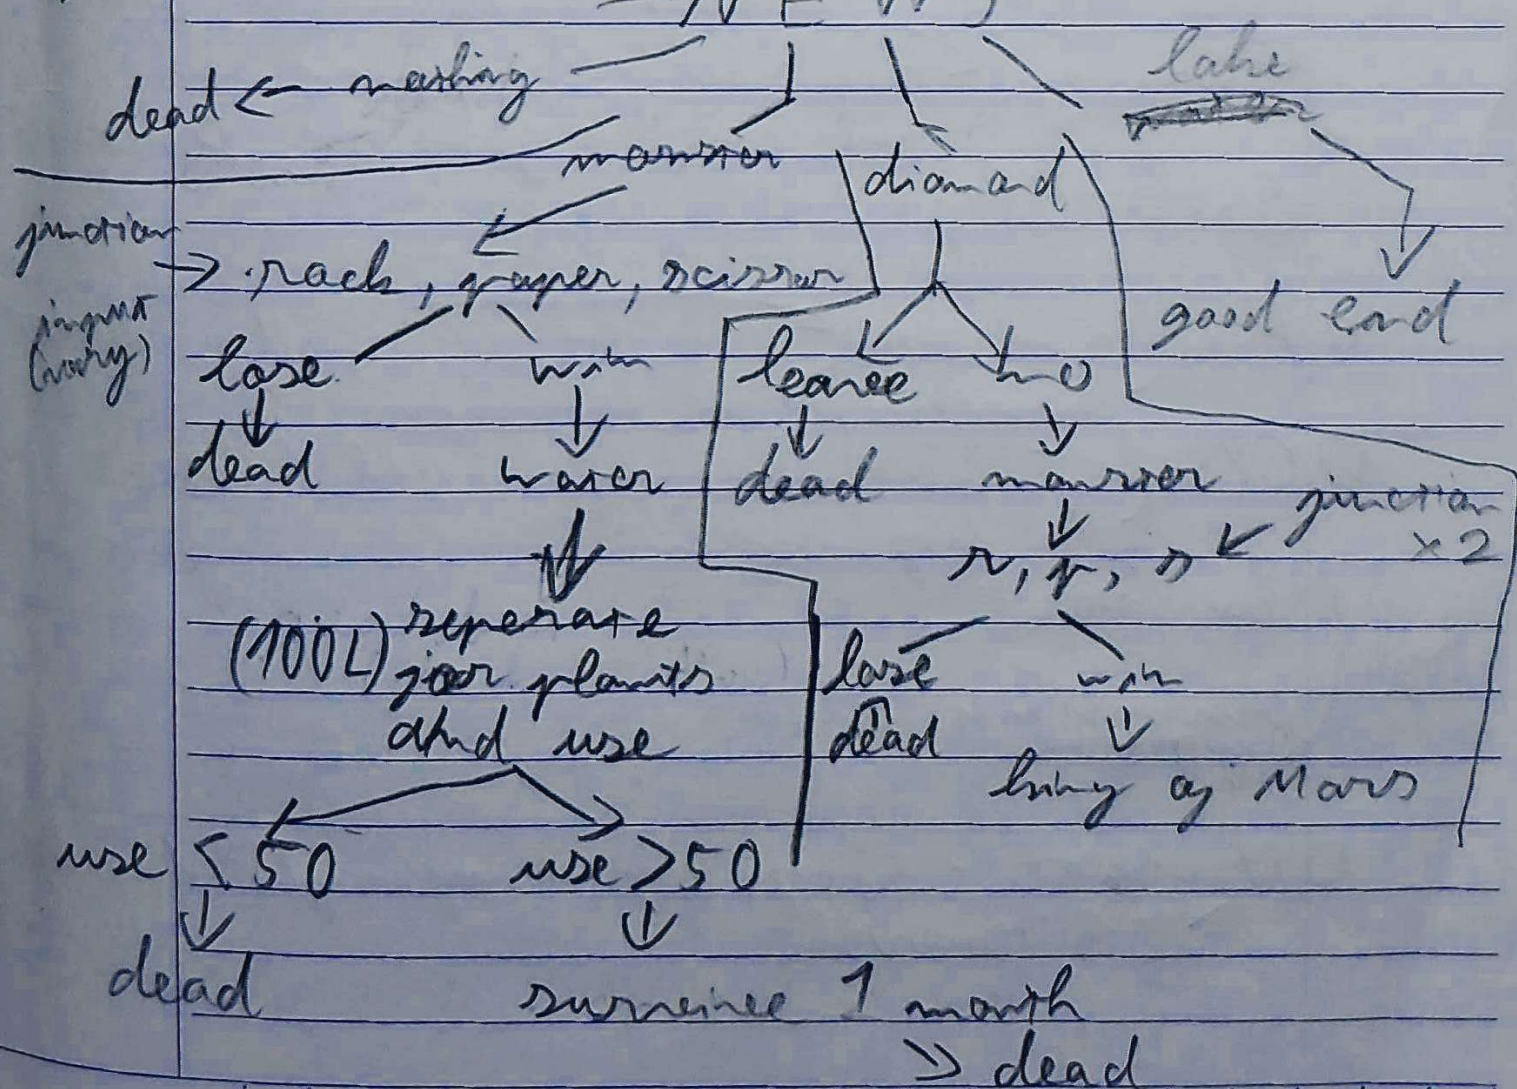 N E W S
lake
dead <- nothing
monster
diamond
junction
-> rock, paper, scissor
input
(vary)
good end
lose win
leave no
dead water
dead monster
junction
x2
r, p, s
(100L) seperate
for plants
and use
lose win
dead
king of Mars
use < 50 use > 50
dead survive 1 month
>> dead